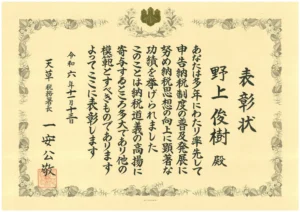 表彰状
野上俊樹殿
あなたは多年にわたり率先して
申告納税制度の普及発展に
努め納税思想の向上に顕著な
功績を挙げられました
このことは納税道義の高揚に
寄与するところ多大であり他の
模範とすべきものであります
よってここに表彰します
令和六年十一月十三日
天草税務署長 一安公敬